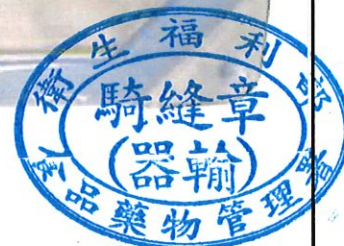 衛生福利部
騎縫章
(器輸)
食品藥物管理署